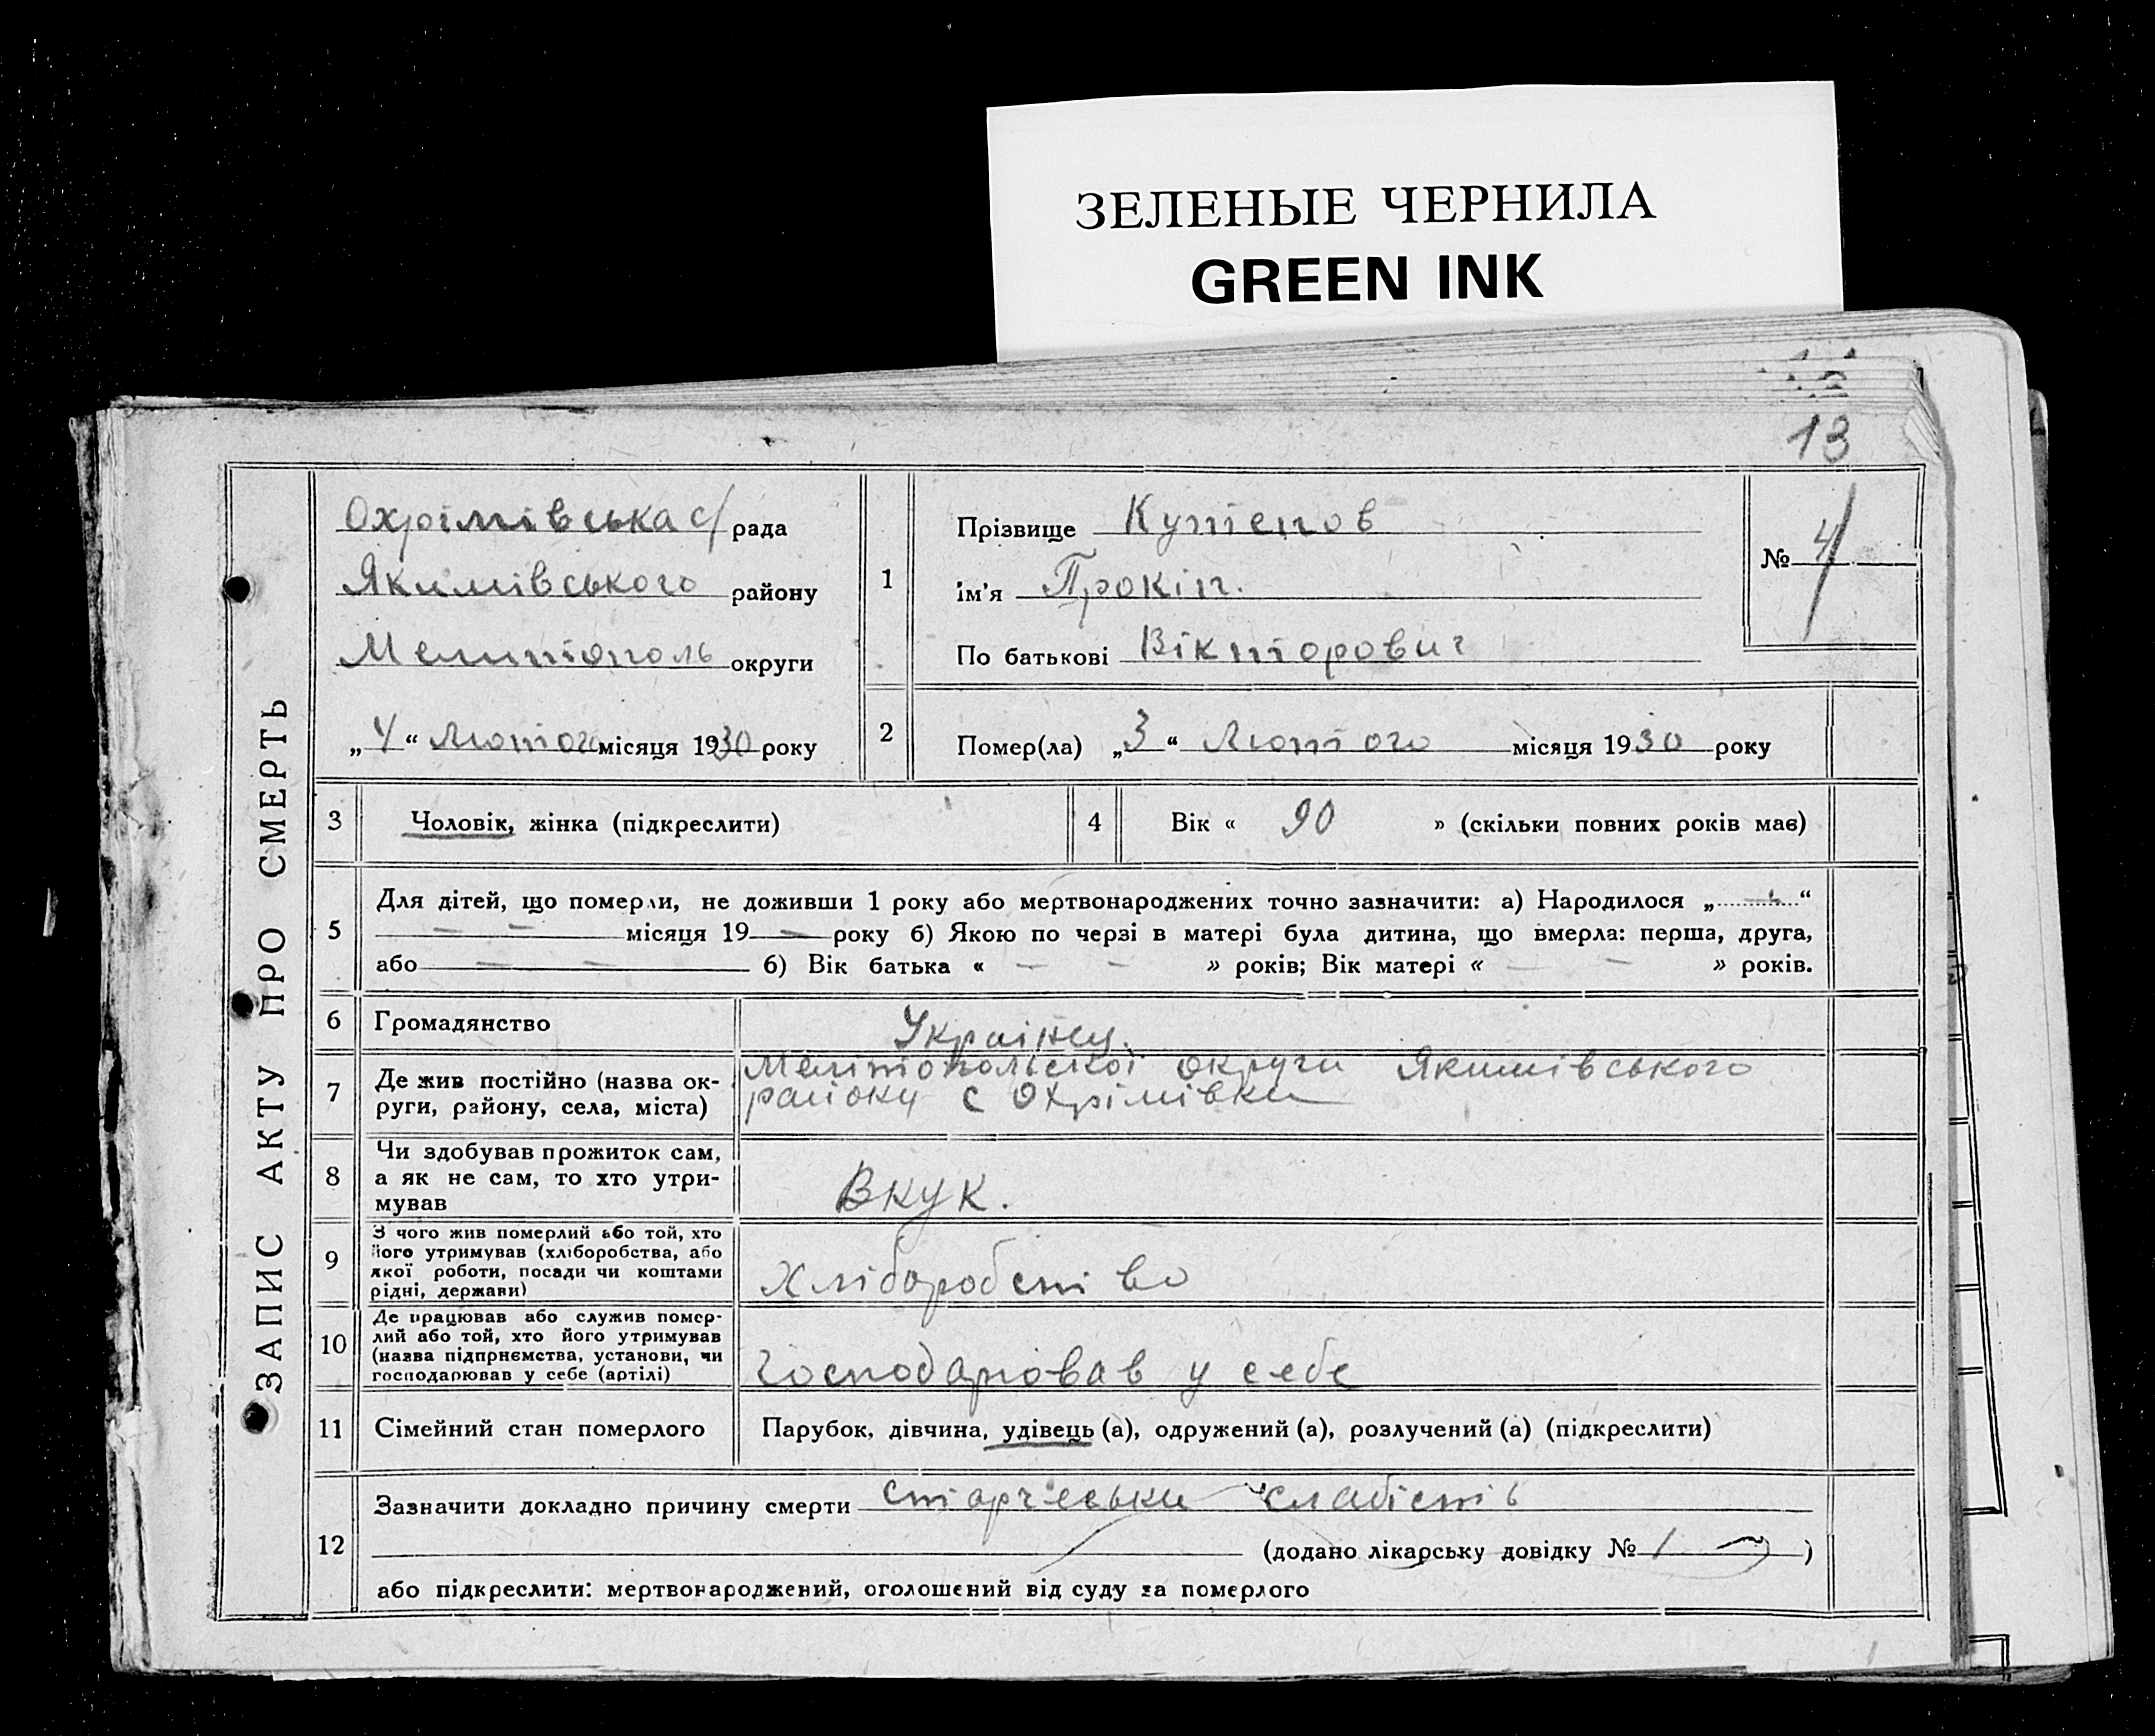 ЗЕЛЕНЫЕ ЧЕРНИЛА
GREEN INK
13
ЗАПИС АКТУ ПРО СМЕРТЬ
Охрімівська с/рада
Якимівського району
Мелитополь округи
„4“ Лютого місяця 1930 року
1
Прізвище Кутепов
ім'я Прокіп.
По батькові Вікторович
№ 4
2
Помер(ла) „3“ Лютого місяця 1930 року
3 Чоловік, жінка (підкреслити)
4 Вік « 90 » (скільки повних років має)
5
Для дітей, що померли, не доживши 1 року або мертвонароджених точно зазначити: а) Народилося „ - “
— — місяця 19 — року б) Якою по черзі в матері була дитина, що вмерла: перша, друга,
або — — б) Вік батька « — - » років; Вік матері « — - » років.
6 Громадянство Украінец.
7
Де жив постійно (назва ок-
руги, району, села, міста)
Мелітопольскоі округи Якимівського
району с Охрімівки
8
Чи здобував прожиток сам,
а як не сам, то хто утри-
мував
Внук.
9
З чого жив померлий або той, хто
його утримував (хліборобства, або
якої роботи, посади чи коштами
рідні, держави)
Хліборобство
10
Де працював або служив помер-
лий або той, хто його утримував
(назва підпрнємства, установи, чи
господарював у себе (артілі)
Господарював у себе
11 Сімейний стан померлого Парубок, дівчина, удівець (а), одружений (а), розлучений (а) (підкреслити)
12
Зазначити докладно причину смерти старчеськи слабість
(додано лікарську довідку № )
або підкреслити: мертвонароджений, оголошений від суду за померлого